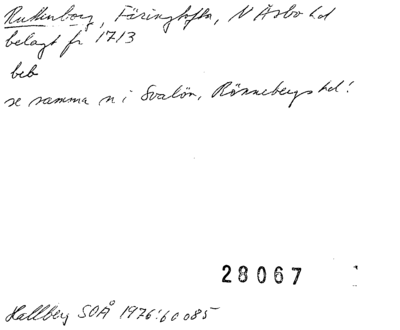 Ruttenborg, Färingtofta, N Åsbo hd
belagt fr 1713
beb
se samma n i Svalöv, Rönnebergs hd!
28067
Hallberg SOÅ 1976:60085